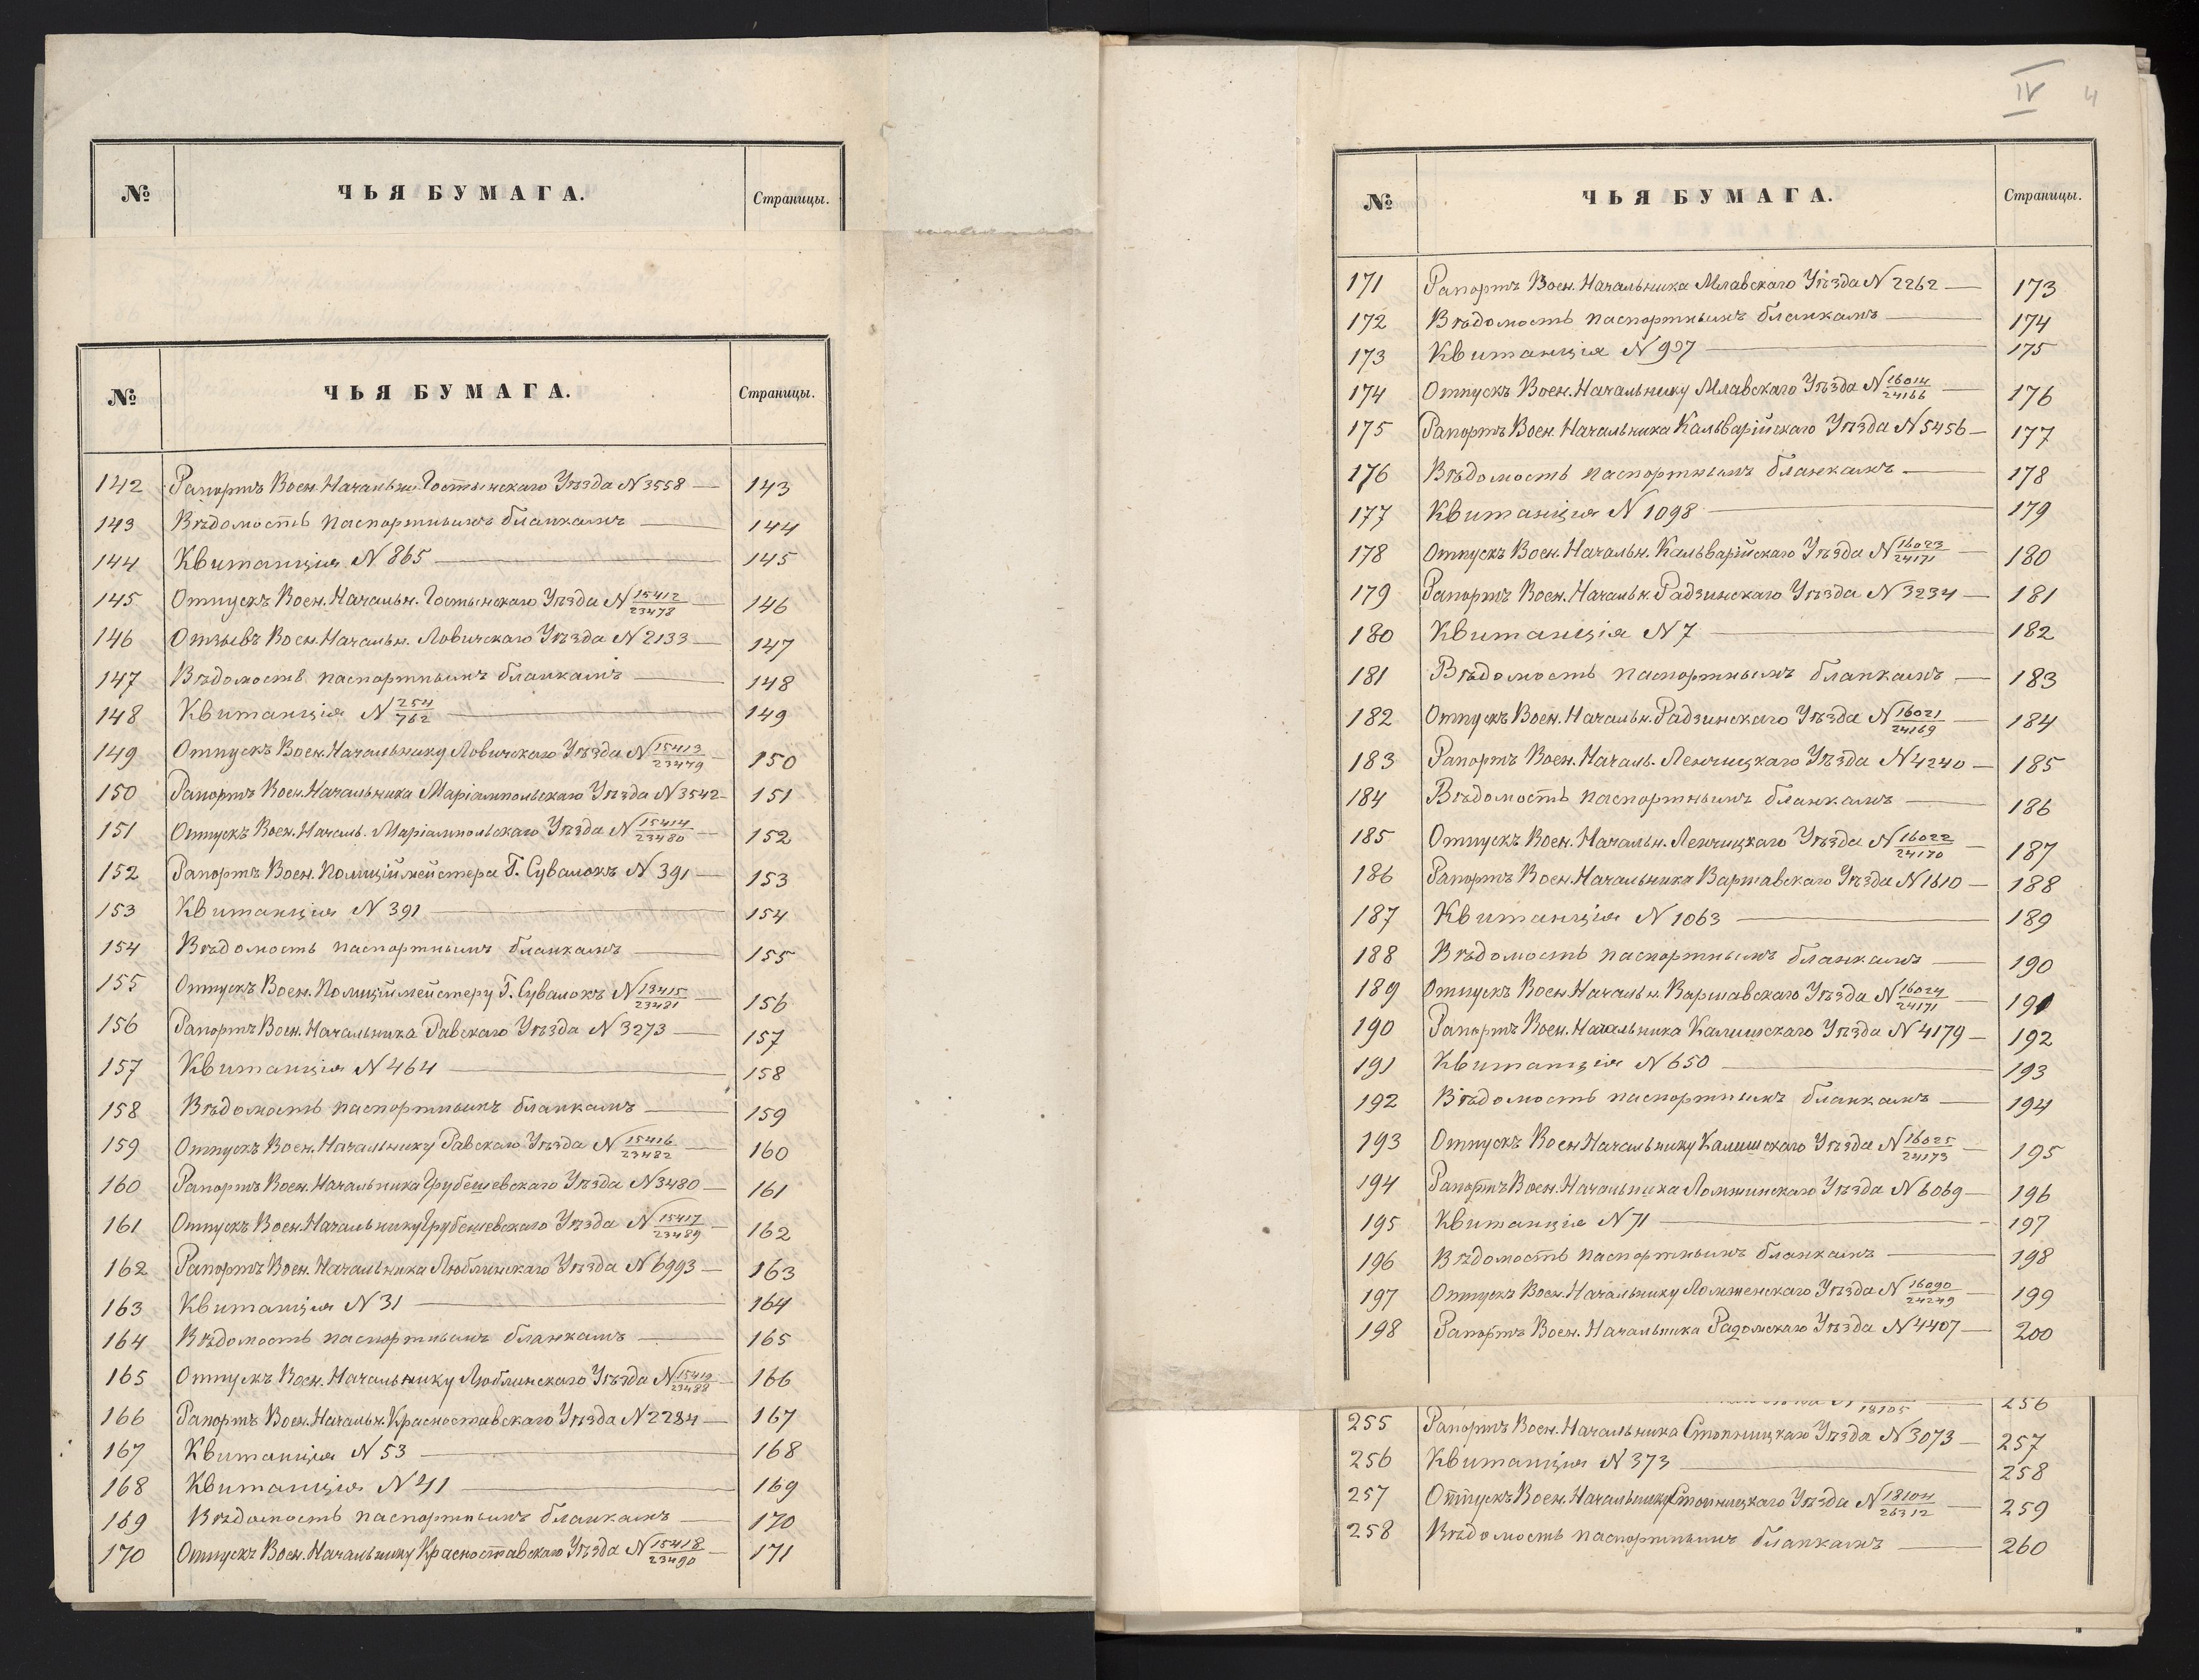 № ЧЬЯ БУМАГА. Страницы.
№ ЧЬЯ БУМАГА. Страницы.
142 Рапортъ Воен. Начальн. Гостынскаго Уѣзда N 3558 — 143
143 Вѣдомость паспортнымъ бланкамъ — 144
144 Квитанція N 865 — 145
145 Отпускъ Воен. Начальн. Гостынскаго Уѣзда N 15412/23478 — 146
146 Отзывъ Воен. Начальн. Ловичскаго Уѣзда N 2133 — 147
147 Вѣдомость паспортнымъ бланкамъ — 148
148 Квитанція N 254/762 — 149
149 Отпускъ Воен. Начальнику Ловичскаго Уѣзда N 15413/23479 — 150
150 Рапортъ Воен. Начальника Маріампольскаго Уѣзда N 3542 — 151
151 Отпускъ Воен. Началь. Маріампольскаго Уѣзда N 15414/23480 — 152
152 Рапортъ Воен. Полиціймейстера Г. Сувалокъ N 391 — 153
153 Квитанція N 391 — 154
154 Вѣдомость паспортнымъ бланкамъ — 155
155 Отпускъ Воен. Полиціймейстеру Г. Сувалокъ N 13415/23481 — 156
156 Рапортъ Воен. Начальника Равскаго Уѣзда N 3273 — 157
157 Квитанція N 464 — 158
158 Вѣдомость паспортнымъ бланкамъ — 159
159 Отпускъ Воен. Начальнику Равскаго Уѣзда N 15416/23482 — 160
160 Рапортъ Воен. Начальника Грубешевскаго Уѣзда N 3480 — 161
161 Отпускъ Воен. Начальнику Грубешевскаго Уѣзда N 15417/23489 — 162
162 Рапортъ Воен. Начальника Люблинскаго Уѣзда N 6993 — 163
163 Квитанція N 31 — 164
164 Вѣдомость паспортнымъ бланкамъ — 165
165 Отпускъ Воен. Начальнику Люблинскаго Уѣзда N 15419/23488 — 166
166 Рапортъ Воен. Начальн. Красноставскаго Уѣзда N 2284 — 167
167 Квитанція N 53 — 168
168 Квитанція N 41 — 169
169 Вѣдомость паспортнымъ бланкамъ — 170
170 Отпускъ Воен. Начальнику Красноставскаго Уѣзда N 15418/23490 — 171
IV 4
№ ЧЬЯ БУМАГА. Страницы.
171 Рапортъ Воен. Начальника Млавскаго Уѣзда N 2262 — 173
172 Вѣдомость паспортнымъ бланкамъ — 174
173 Квитанція N 907 — 175
174 Отпускъ Воен. Начальнику Млавскаго Уѣзда N 16014/24166 — 176
175 Рапортъ Воен. Начальника Кальварійскаго Уѣзда N 5456 — 177
176 Вѣдомость паспортнымъ бланкамъ — 178
177 Квитанція N 1098 — 179
178 Отпускъ Воен. Начальн. Кальварійскаго Уѣзда N 16023/24171 — 180
179 Рапортъ Воен. Начальн. Радзинскаго Уѣзда N 3234 — 181
180 Квитанція N 7 — 182
181 Вѣдомость паспортнымъ бланкамъ — 183
182 Отпускъ Воен. Начальн. Радзинскаго Уѣзда N 16021/24169 — 184
183 Рапортъ Воен. Началь. Ленчицкаго Уѣзда N 4240 — 185
184 Вѣдомость паспортнымъ бланкамъ — 186
185 Отпускъ Воен. Начальн. Ленчицкаго Уѣзда N 16022/24170 — 187
186 Рапортъ Воен. Начальника Варшавскаго Уѣзда N 1610 — 188
187 Квитанція N 1063 — 189
188 Вѣдомость паспортнымъ бланкамъ — 190
189 Отпускъ Воен. Начальн. Варшавскаго Уѣзда N 16024/24171 — 191
190 Рапортъ Воен. Начальника Калишскаго Уѣзда N 4179 — 192
191 Квитанція N 650 — 193
192 Вѣдомость паспортнымъ бланкамъ — 194
193 Отпускъ Воен. Начальнику Калишскаго Уѣзда N 16025/24173 — 195
194 Рапортъ Воен. Начальника Ломжинскаго Уѣзда N 6069 — 196
195 Квитанція N 71 — 197
196 Вѣдомость паспортнымъ бланкамъ — 198
197 Отпускъ Воен. Начальнику Ломженскаго Уѣзда N 16090/24249 — 199
198 Рапортъ Воен. Начальника Радомскаго Уѣзда N 4407 — 200
18105 — 256
255 Рапортъ Воен. Начальника Стопницкаго Уѣзда N 3073 — 257
256 Квитанція N 373 — 258
257 Отпускъ Воен. Начальнику Стопницкаго Уѣзда N 18104/26312 — 259
258 Вѣдомость паспортнымъ бланкамъ — 260